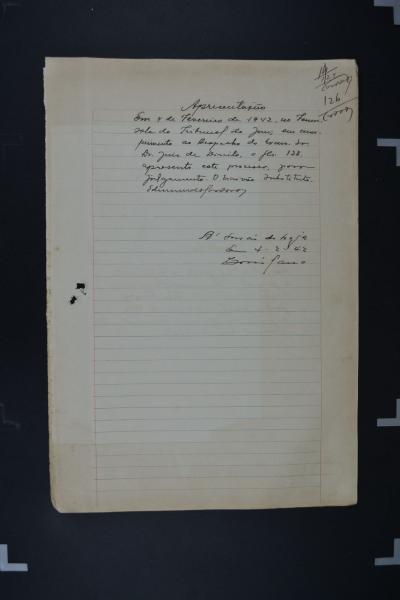 126
Apresentação
Em 4 de Fevereiro de 1942, na
sala do Tribunal do Jury, em cum-
primento ao despacho do Exmo. Snr.
Dr. Juiz de Direito, a fls. 122,
apresento este processo, para
julgamento. O Escrivão Substituto.
Á Sessão de hoje
Em 4-2-42